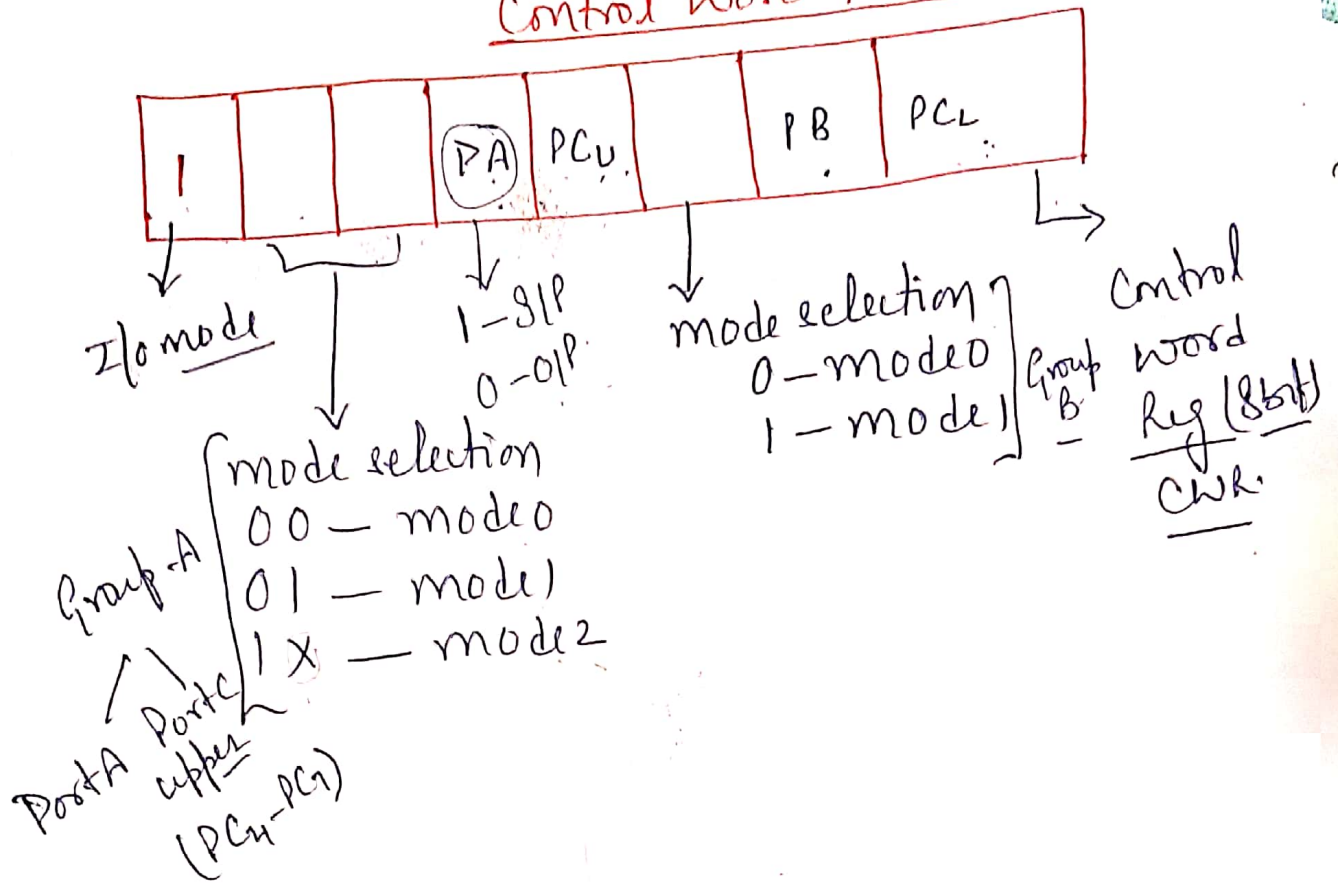 Control Word
1 PA PCU PB PCL
I/O mode
1 - I/P
0 - O/P.
mode selection
0 - mode 0
1 - mode 1
Group
B.
Control
Word
Reg (8bit)
CWR.
Group-A
mode selection
00 - mode 0
01 - mode 1
1X - mode 2
Port A
Port C
upper
(PC4-PC7)